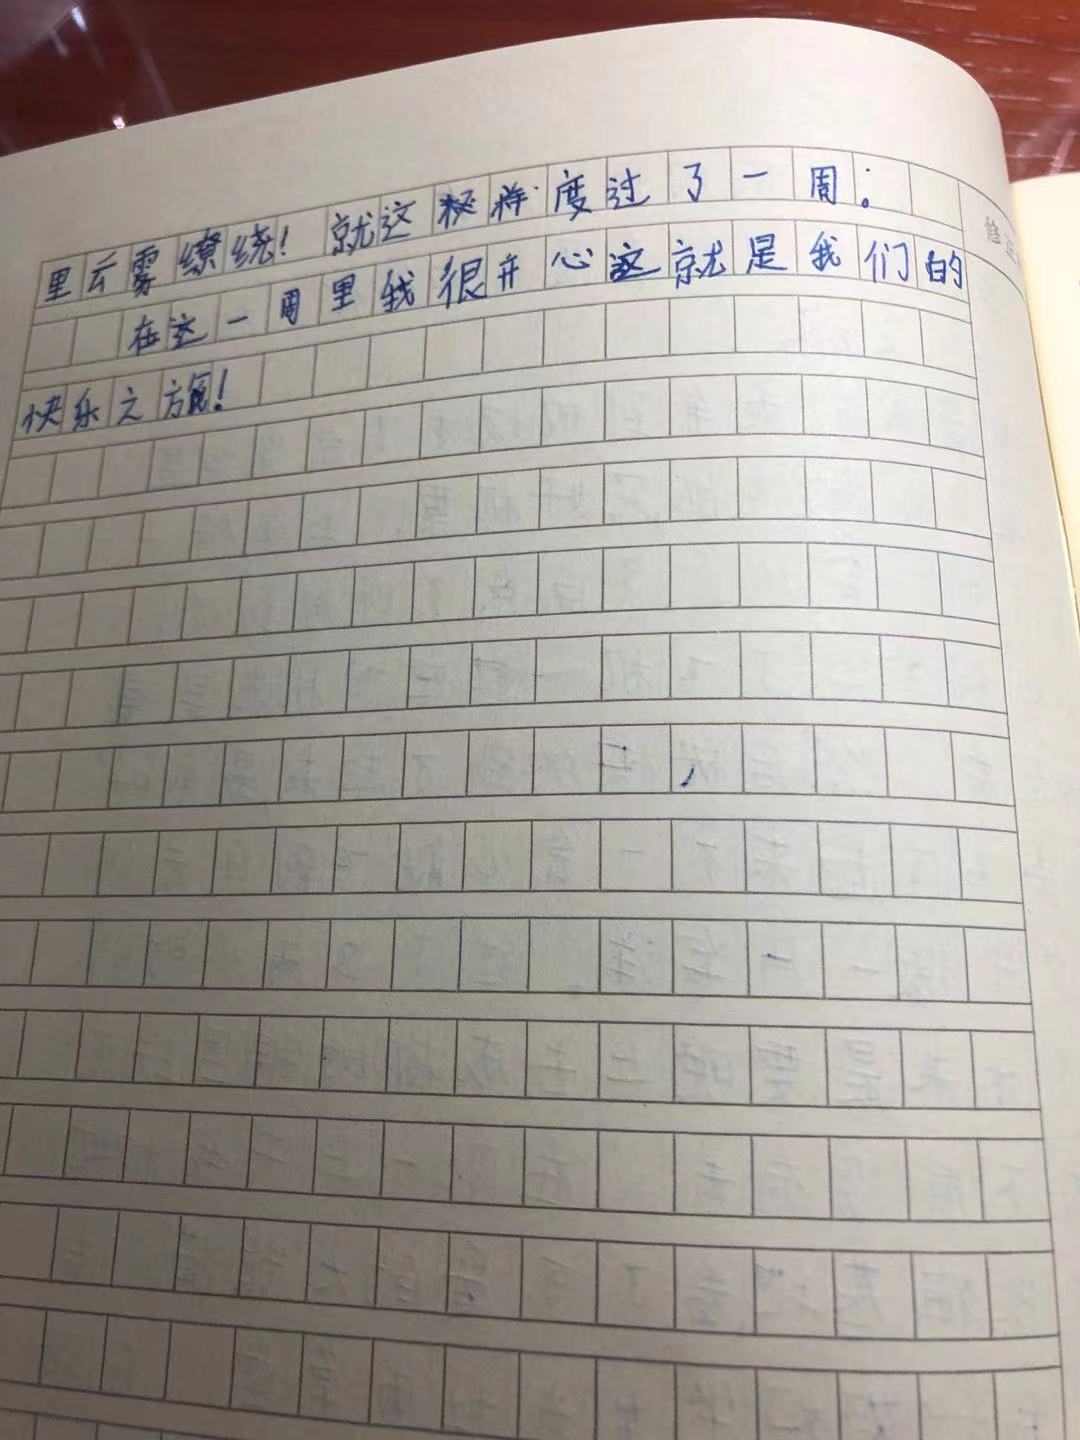 里云雾缭绕！就这样度过了一周。
在这一周里我很开心这就是我们的
快乐之旅！
修正